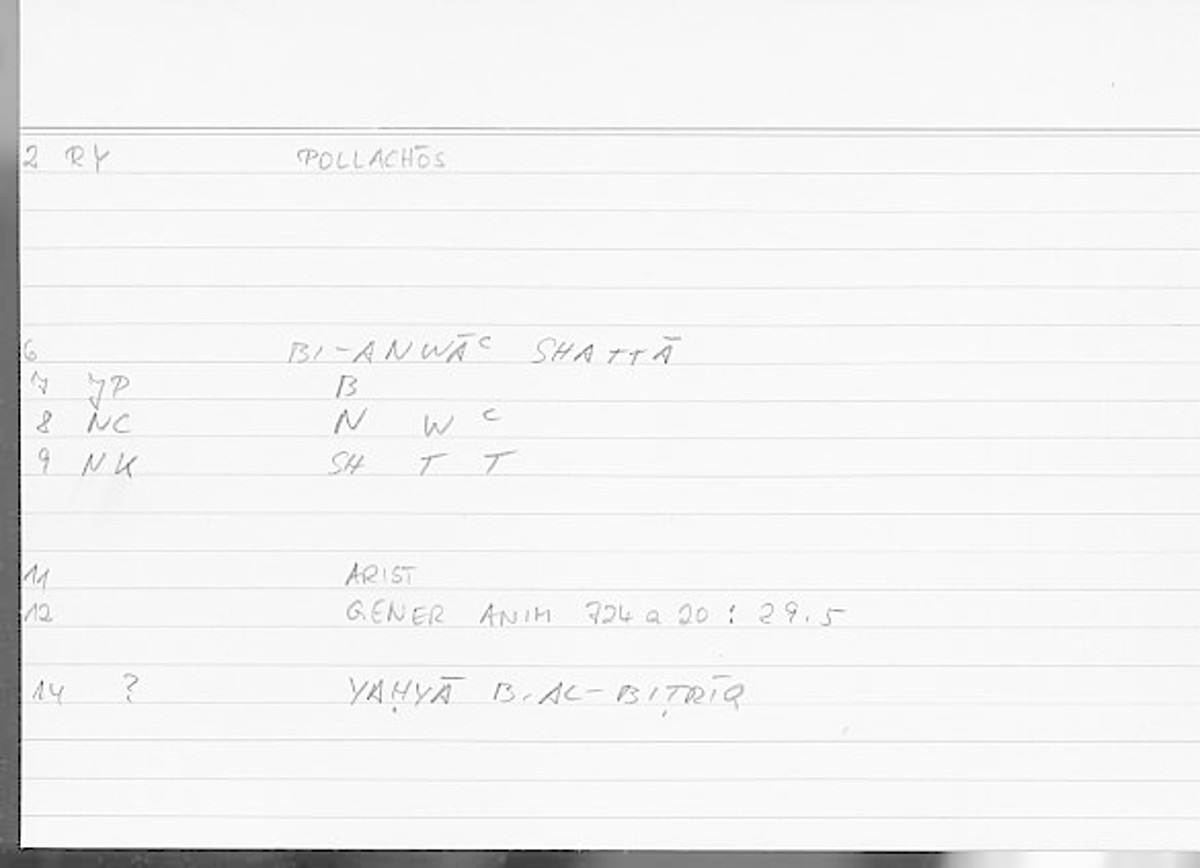 2 RY POLLACHŌS
6 BI-ANWĀC SHATTĀ
7 JP B
8 NC N W C
9 NK SH T T
11 ARIST
12 GENER ANIM 724 a 20 : 29.5
14 ? YAḤYĀ B. AL-BIṬRĪQ